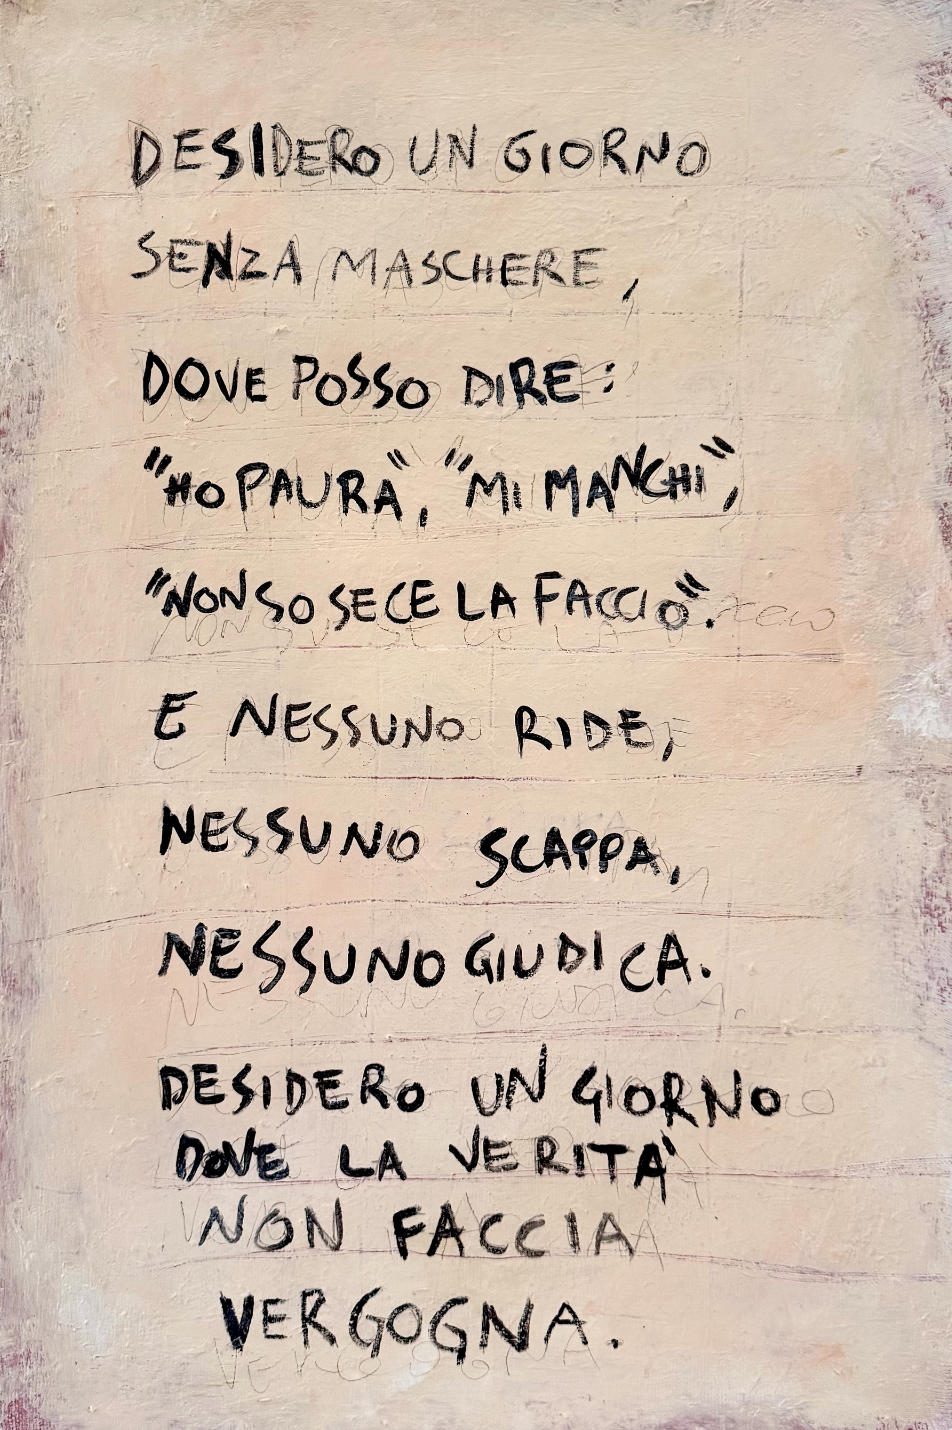 DESIDERO UN GIORNO
SENZA MASCHERE,
DOVE POSSO DIRE:
"HO PAURA", "MI MANCHI",
"NON SO SE CE LA FACCIO".
E NESSUNO RIDE,
NESSUNO SCAPPA,
NESSUNO GIUDICA.
DESIDERO UN GIORNO
DOVE LA VERITA'
NON FACCIA
VERGOGNA.